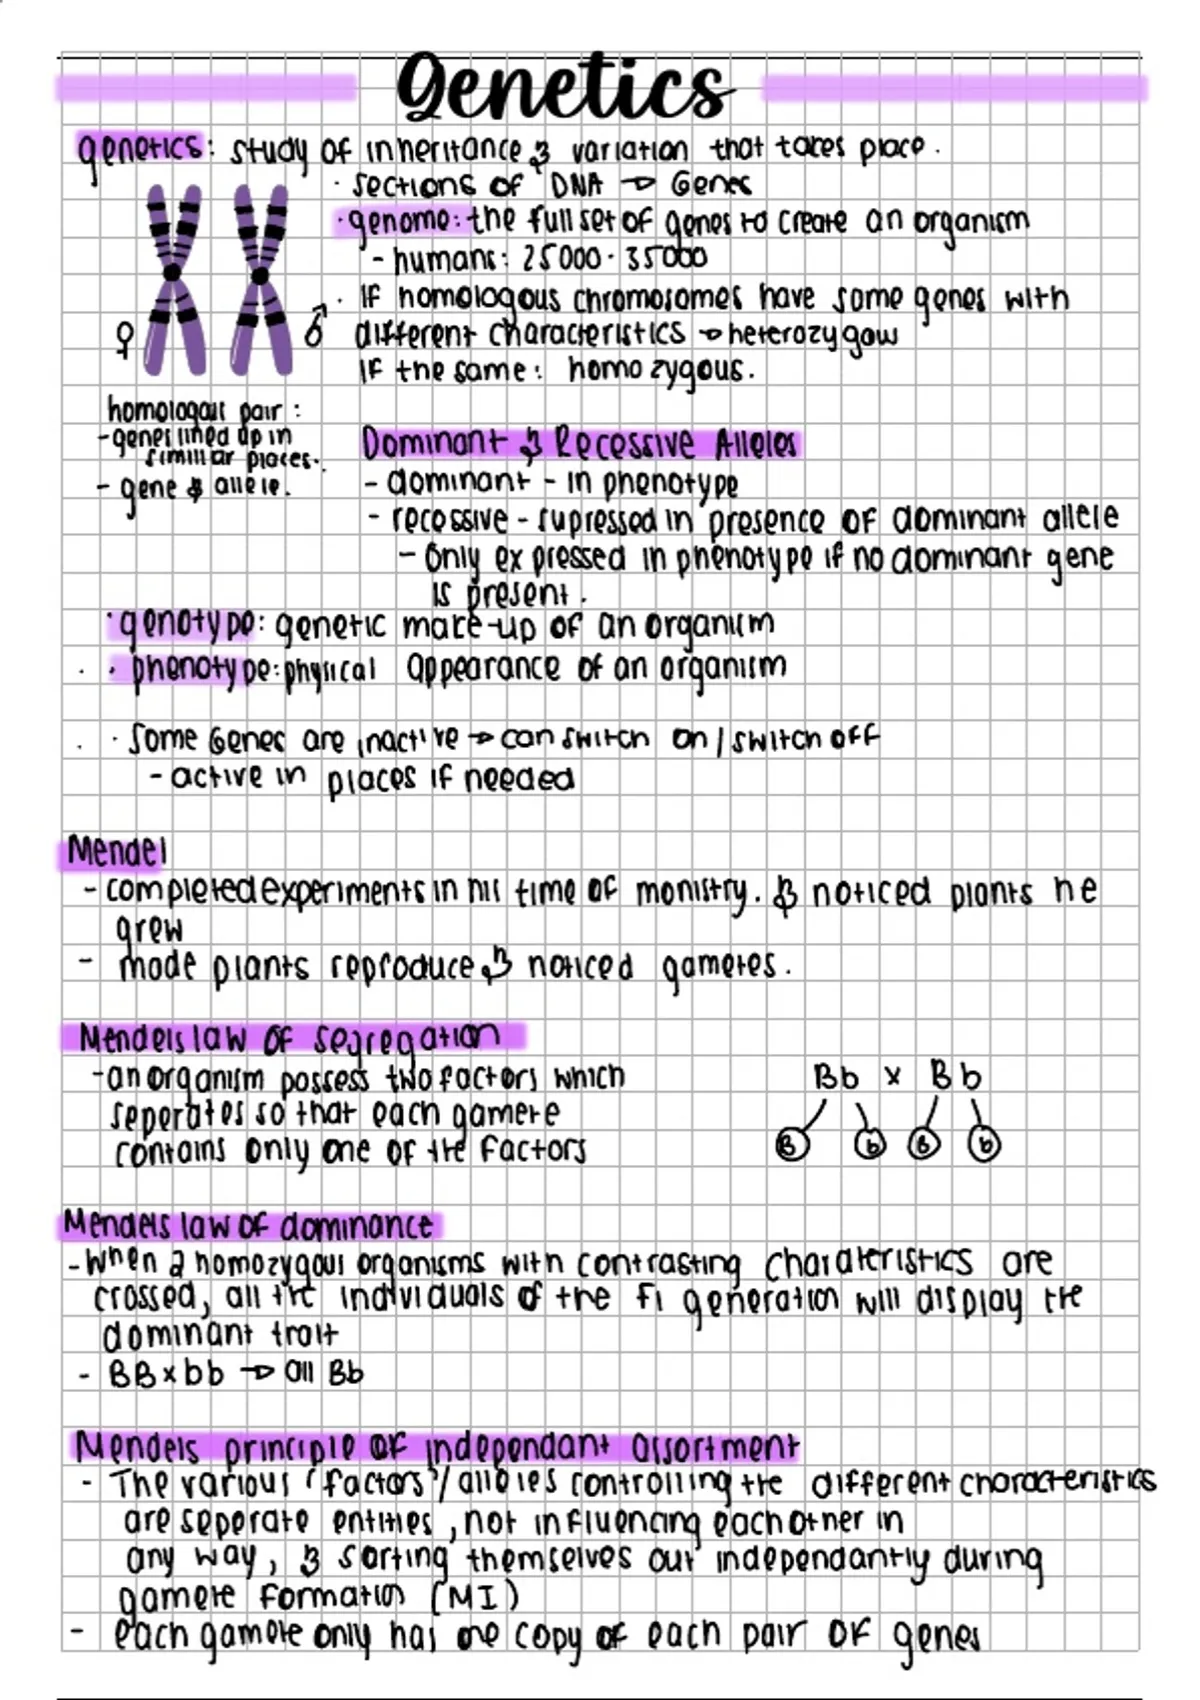 Genetics
genetics: study of inheritance & variation that takes place.
· sections of DNA → Genes
· genome: the full set of genes to create an organism
- humans: 25000 - 35000
· If homologous chromosomes have same genes with
different characteristics → heterozygow
If the same: homozygous.
♀ ♂
homologous pair:
- genes lined up in
simillar places.
- gene & allele.
Dominant & Recessive Alleles
- dominant - in phenotype
- recessive - supressed in presence of dominant allele
- only expressed in phenotype if no dominant gene
is present.
· genotype: genetic make-up of an organism
· phenotype: physical appearance of an organism
· Some Genes are inactive → can switch on / switch off
- active in places if needed
Mendel
- completed experiments in his time of monistry. & noticed plants he
grew
- made plants reproduce & noticed gametes.
Mendels law of segregation
- an organism possess two factors which
seperates so that each gamete
contains only one of the factors
Bb x Bb
B b B b
Mendels law of dominance
- When 2 homozygous organisms with contrasting charateristics are
crossed, all the individuals of the F1 generation will display the
dominant trait
- BB x bb → all Bb
Mendels principle of independant assortment
- The various "factors"/alleles controlling the different characteristics
are seperate entities, not influencing each other in
any way, & sorting themselves out independantly during
gamete formation (MI)
- each gamete only has one copy of each pair of genes